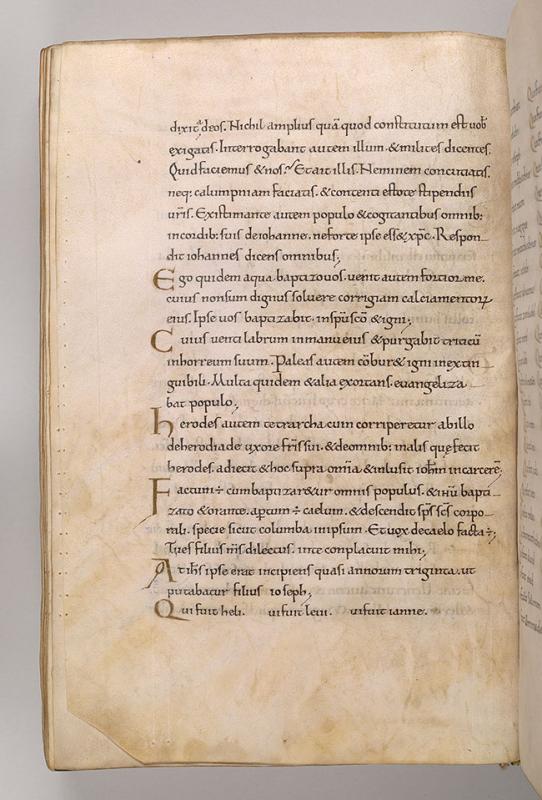 dixit ad eos. Nichil amplius quā quod constitutum est uob̄
exigatis. Interrogabant autem illum. & milites dicentes.
Quid faciemus & nos? Et ait illis. Neminem concutiatis.
neq: calumpniam faciatis. & contenti estote stipendiis
ur̄is. Existimante autem populo & cogitantibus omnib:
in cordib: suis de iohanne. ne forte ipse ess& xp̄c. Respon
dit iohannes dicens omnibus;
Ego quidem aqua baptizo uos. uenit autem fortior me.
cuius non sum dignus soluere corrigiam calciamentorꝝ
eius. Ipse uos baptizabit. in sp̄u sc̄o & igni;
Cuius uentilabrum in manu eius & purgabit triticū
in horreum suum. Paleas autem cōbur& igni inextin
guibili. Multa quidem & alia exortans. euangeliza
bat populo;
herodes autem tetrarcha cum corriperetur ab illo
de herodiade uxore fr̄is sui. & de omnib: malis quę fecit
herodes. adiecit & hoc supra om̄ia. & inclusit ioh̄m in carcere;
Factum ÷ cum baptizar&ur omnis populus. & ih̄u bapti
zato & orante. apertum ÷ caelum. & descendit sp̄s sc̄s corpo
rali. specie sicut columba in ipsum. Et uox de caelo facta ÷;
Tu es filius m̄s dilectus. in te complacuit mihi;
At ih̄s ipse erat incipiens quasi annorum triginta. ut
putabatur filius ioseph;
Qui fuit heli. ui fuit leui. ui fuit ianne.